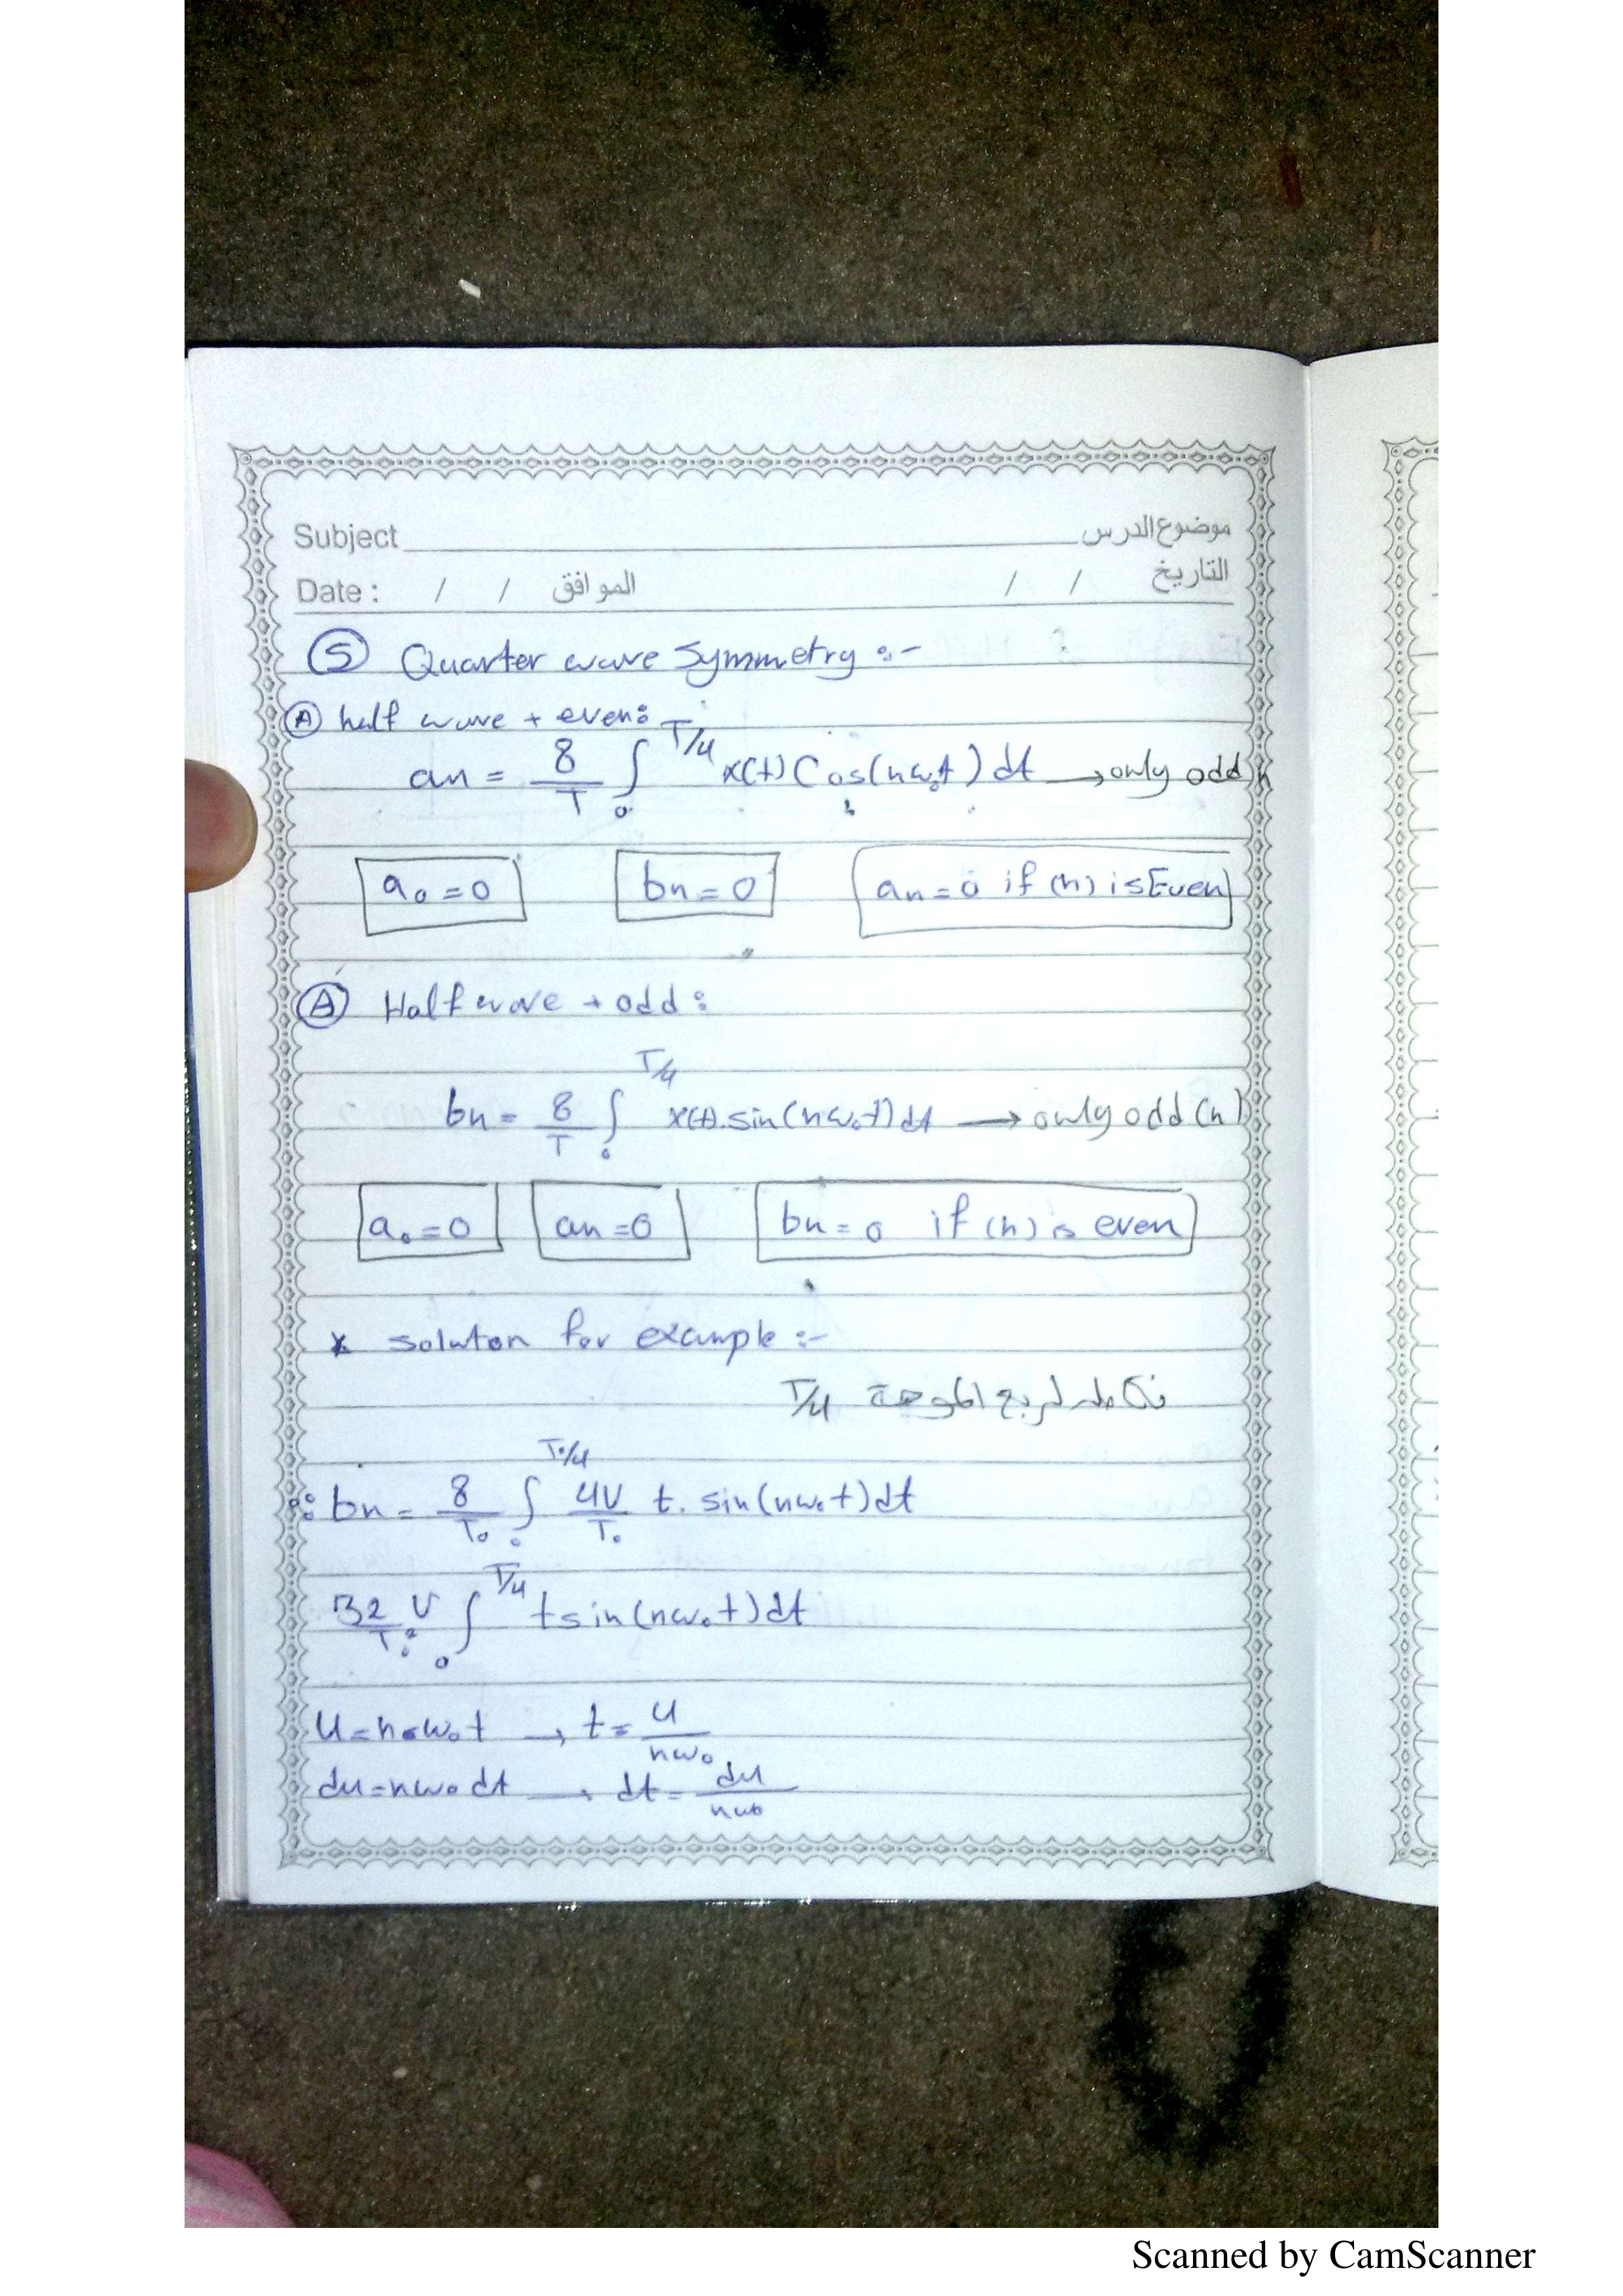 Subject موضوع الدرس
Date : / / الموافق / / التاريخ
⑤ Quarter wave Symmetry :-
Ⓐ half wave + even:
an = 8/T ∫₀^T/4 x(t) Cos(nω₀t) dt → only odd n
a₀ = 0 bn = 0 an = 0 if (n) is Even
Ⓐ Half wave + odd :
bn = 8/T ∫₀^T/4 x(t). sin(nω₀t) dt → only odd (n)
a₀ = 0 an = 0 bn = 0 if (n) is even
* soluton for example :-
نكامل لربع الموجة T/4
∴ bn = 8/T₀ ∫₀^T₀/4 4V/T₀ t. sin(nω₀t) dt
32V/T₀² ∫₀^T/4 t sin(nω₀t) dt
U = nω₀t → t = U/nω₀
du = nω₀ dt → dt = du/nω₀
Scanned by CamScanner